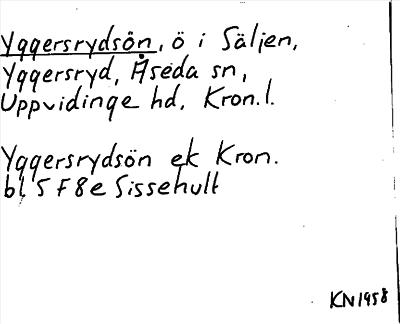 Yggersrydsön, ö i Säljen,
Yggersryd, Åseda sn,
Uppvidinge hd, Kron.l.
Yggersrydsön ek Kron.
bl 5 F 8 e Sissehult
KN 1958